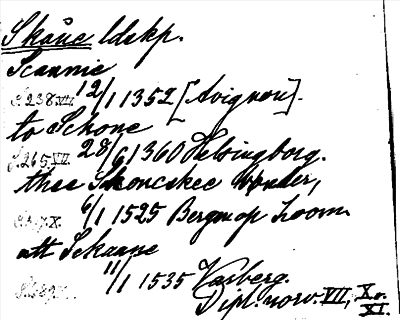 Skåne ldskp.
Scannie
S. 238. VII. 12/1 1352 [Avignon].
to Schone
S. 265. VII. 28/6 1360 Helsingborg.
thee Skoneskee
6/1 1525 Bergen op Zoom
att Schaane
11/1 1535 Varberg.
Dipl. norv. VII, X o.
XI.